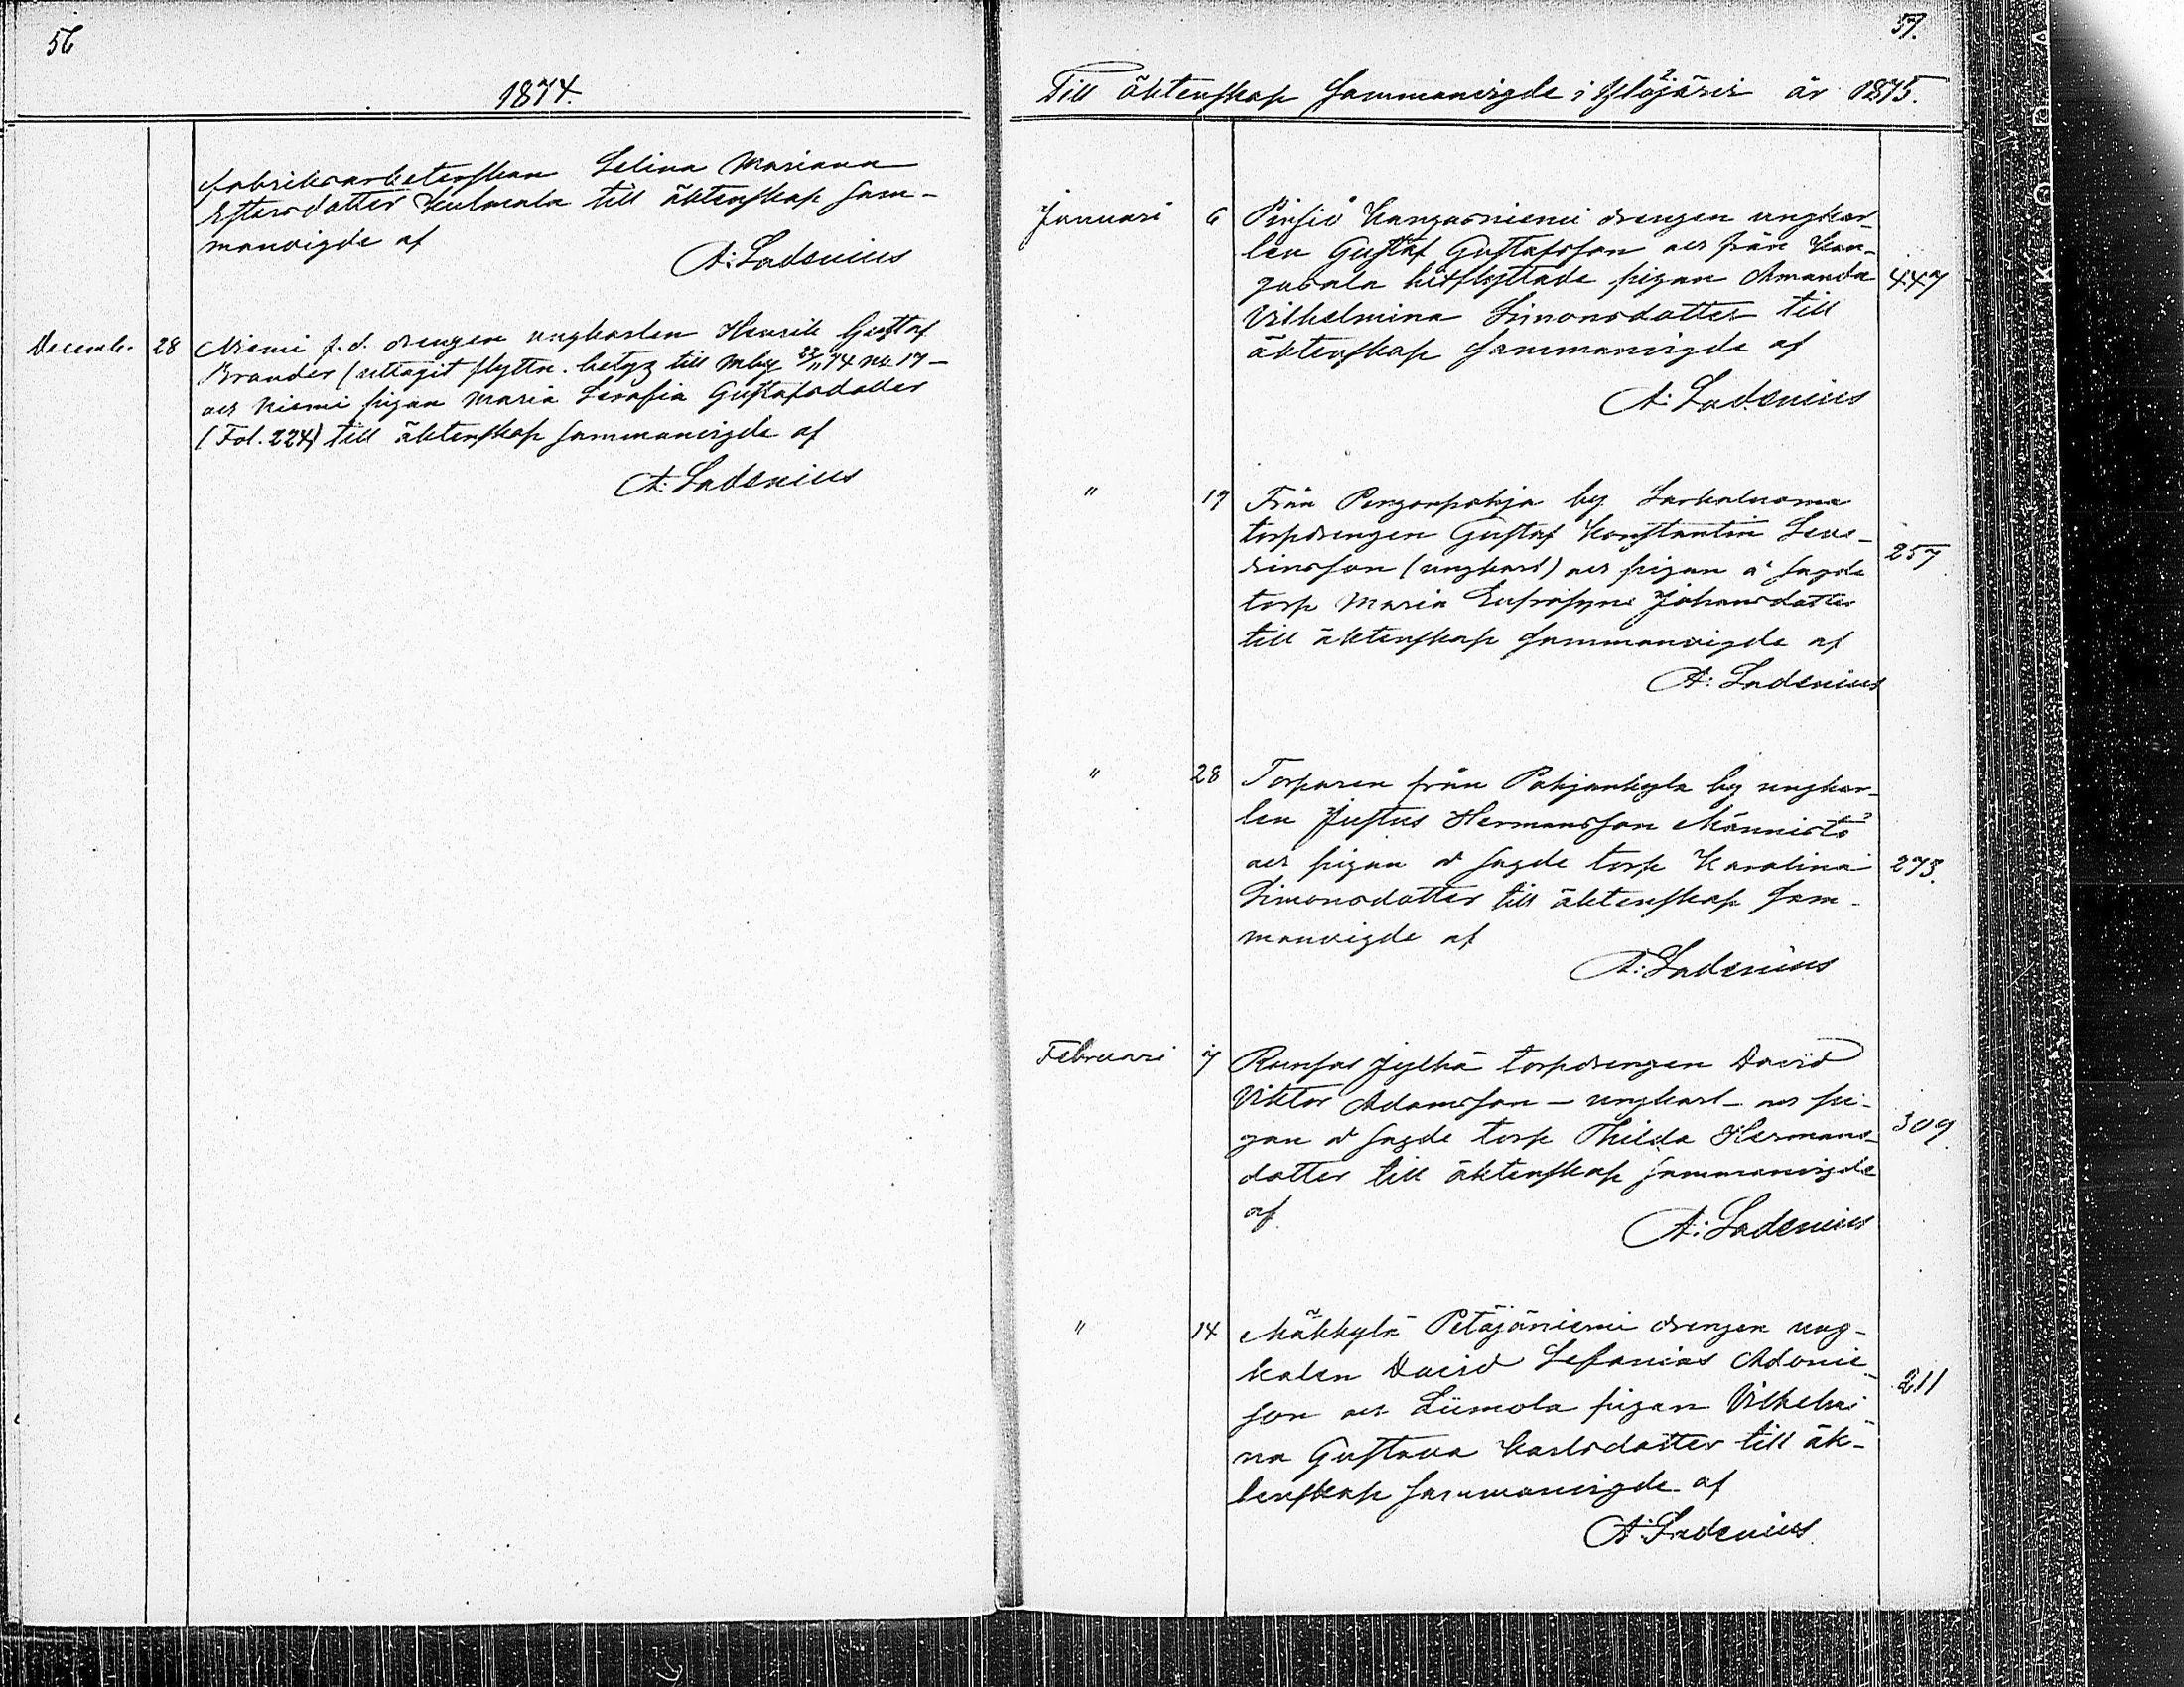 56
1874.
fabriksarbeterskan Selina Mariana
Estersdotter Kulmala till äktenskap sam-
manvigde af
A: Ladenius
Decemb. 28 Niemi f.d. drengen ungkarlen Henrik Gustaf
Brander (uttagit flyttn. betyg till Mby 23/11 74 No 17 -
och Niemi pigan Maria Serafia Gustafsdotter
(Fol. 224) till äktenskap sammanvigde af
A: Ladenius
57.
Till äktenskap sammanvigde i Ylöjärvi år 1875.
Januari 6 Pinsiö Kangasniemi drengen ungkar-
len Gustaf Gustafsson och från Kan-
gasala hitflyttade pigan Amanda 447
Vilhelmina Simonsdotter till
äktenskap sammanvigde af
A: Ladenius
" 17 Från Pengonpohja by Sarkaluoma
torpdrengen Gustaf Konstantin Seve-
rinsson (ungkarl) och pigan å sagde 257
torp Maria Eufrosyne Johansdotter
till äktenskap sammanvigde af
A: Ladenius
" 28 Torparen från Pohjankylä by ungkar-
len Justus Hermansson Männistö
och pigan å sagde torp Karolina 273.
Simonsdotter till äktenskap sam-
manvigde af
A: Ladenius
Februari 7 Runsas Jylhä torpdrengen David
Viktor Adamsson - ungkarl - och pi-
gan å sagde torp Thilda Hermans- 309
dotter till äktenskap sammanvigde
af
A: Ladenius
" 14 Mäkkylä Petäjäniemi drengen ung-
kalen David Sefanias Adonie-
son och Liimola pigan Vilhelmi- 211
na Gustava Karlsdotter till äk-
tenskap sammanvigde af
A: Ladenius